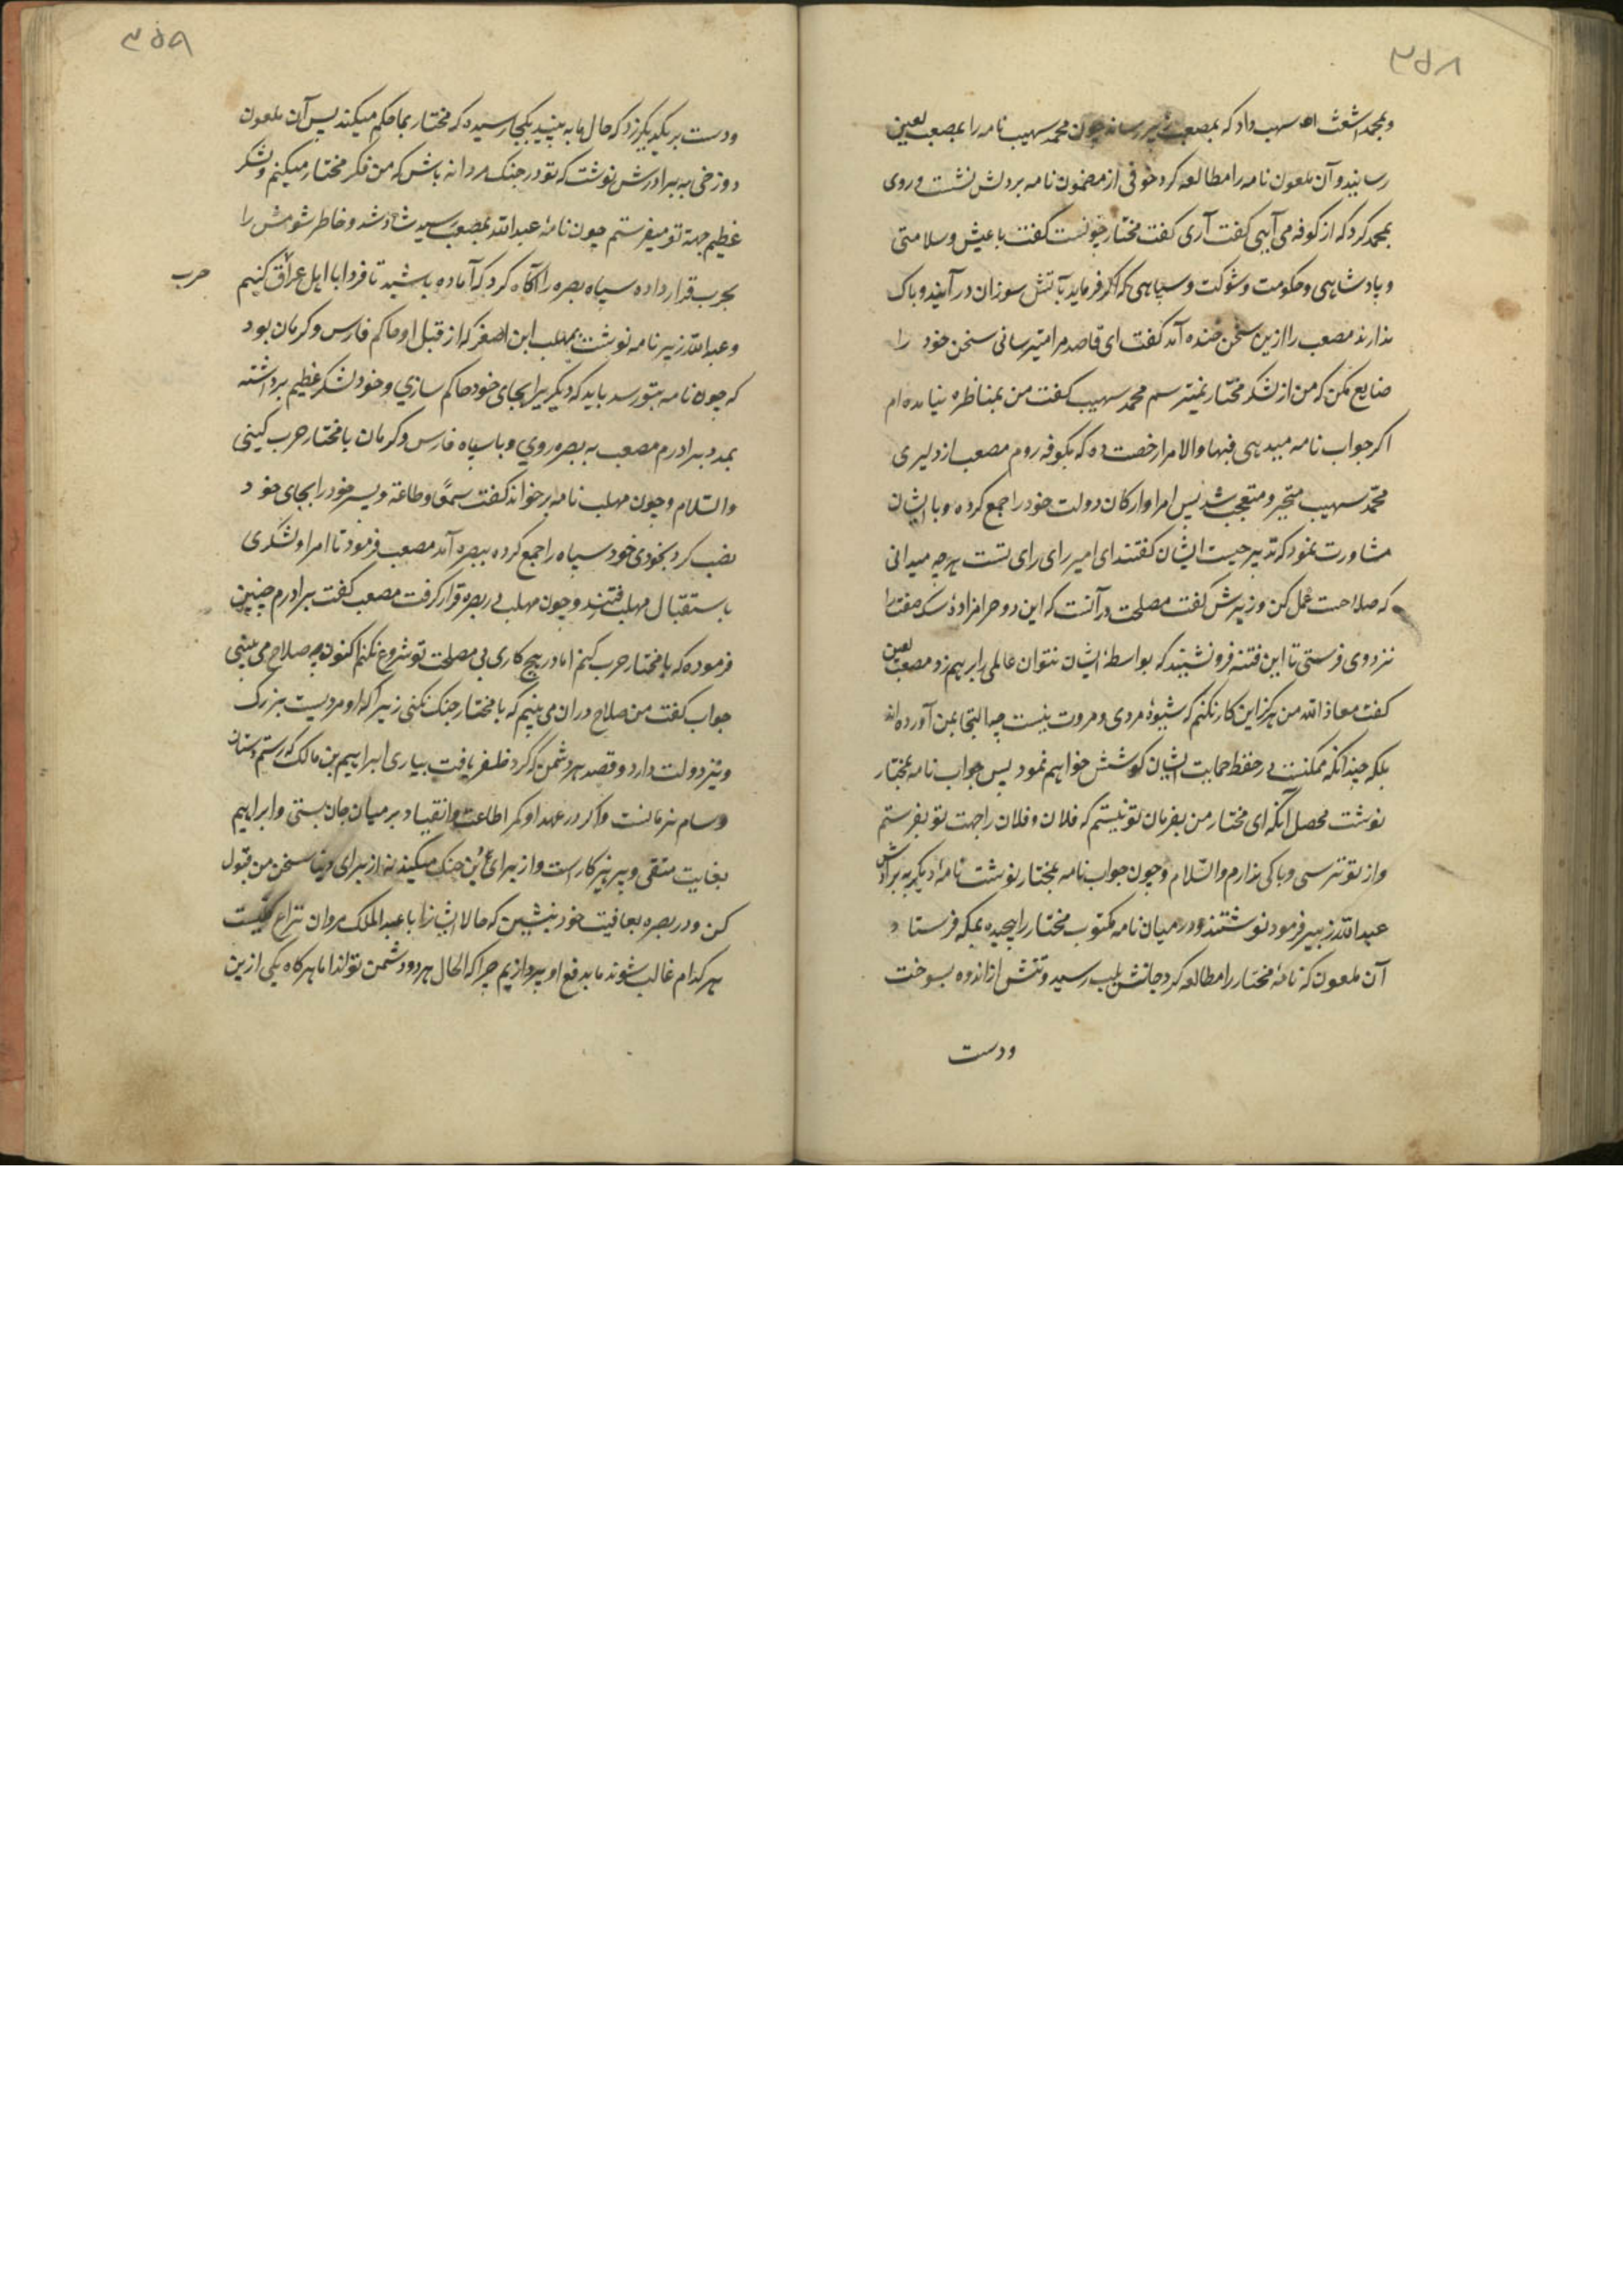 ۳۵۸
و بمحمد اشعث سهب داد که بمصعب زبیر رساند چون محمد سهیب نامه را بمصعب لعین
رسانید و آن ملعون نامه را مطالعه کرد خوفی از مضمون نامه بر دلش نشست و روی
بمحمد کرد که از کوفه می آیی کفت آری کفت مختار چونست کفت با عیش و سلامتی
و پادشاهی و حکومت و شوکت و سپاهی که اکر فرماید بآتش سوزان در آیند و باک
ندارند مصعب را ازین سخن خنده آمد کفت ای قاصد مرا میترسانی سخن خود را
ضایع مکن که من از لشکر مختار نمیترسم محمد سهیب کفت من بمناظره نیامده ام
اکر جواب نامه میدهی فبها والا مرا رخصت ده که بکوفه روم مصعب از دلیری
محمد سهیب متحیر و متعجب شد پس امرا و ارکان دولت خود را جمع کرده و با ایشان
مشاورت نمود که تدبیر چیست ایشان کفتند ای امیر رای رای تست هرچه میدانی
که صلاحست عمل کن وزیرش کفت مصلحت در آنست که این دو حرامزادهٔ سک صفت را
نزد وی فرستی تا این فتنه فرو نشیند که بواسطهٔ ایشان نتوان عالمی را برهم زد مصعب لعین
کفت معاذ الله من هرکز این کار نکنم که شیوهٔ مردی و مروت نیست چه التجا بمن آورده اند
بلکه چندانکه ممکنست در حفظ حمایت ایشان کوشش خواهم نمود پس جواب نامه بمختار
نوشت محصل آنکه ای مختار من بفرمان تو نیستم که فلان و فلان را جهت تو بفرستم
و از تو ترسی و باکی ندارم والسلام و چون جواب نامه بمختار نوشت نامهٔ دیکر به برادرش
عبدالله زبیر فرمود نوشتند و در میان نامه مکتوب مختار را پیچیده بمکه فرستاد
آن ملعون که نامهٔ مختار را مطالعه کرد جانش بلب رسید و تنش از اندوه بسوخت
و دست
۳۵۹
و دست بر یکدیکر زد که حال ما به بینید بکجا رسیده که مختار بما حکم میکند پس آن ملعون
دوزخی به برادرش نوشت که تو در جنک مردانه باش که من فکر مختار میکنم و لشکر
عظیم جهة تو میفرستم چون نامهٔ عبدالله بمصعب رسید شاد شد و خاطر شومش را
بحرب قرار داده سپاه بصره را آکاه کرد که آماده باشید تا فردا با اهل عراق کنیم
حرب
و عبدالله زبیر نامه نوشت بمهلب ابن اصغر که از قبل او حاکم فارس و کرمان بود
که چون نامه بتو رسد باید که دیکریرا بجای خود حاکم سازی و خود لشکر عظیم برداشته
بمدد برادرم مصعب به بصره روی و با سپاه فارس و کرمان با مختار حرب کینی
والسلام و چون مهلب نامه برخواند کفت سمعًا و طاعة و پسر خود را بجای خود
نصب کرد بخودی خود سپاه را جمع کرده ببصره آمد مصعب فرمود تا امرا و لشکری
باستقبال مهلب رفتند و چون مهلب در بصره قرار کرفت مصعب کفت برادرم چنین
فرموده که با مختار حرب کنم اما در هیچ کاری بی مصلحت تو شروع نکنم اکنون چه صلاح می بینی
جواب کفت من صلاح در ان می بینم که با مختار جنک نکنی زیرا که او مردیست بزرک
و نیز دولت دارد و قصد هر دشمن که کرد ظفر یافت بیاری ابراهیم بن مالک که رستم دستان
و سام نریمانست و اکر در عهد او کمر اطاعت و انقیاد بر میان جان بستی و ابراهیم
بغایت متقی و پرهیزکار است و از برای دین جنک میکند نه از برای دنیا سخن من قبول
کن و در بصره بعافیت خود بنشین که حالا ایشانرا با عبدالملک مروان نزاع کلیست
هر کدام غالب شوند ما بدفع او پردازیم چرا که الحال هر دو دشمن تواند اما هرکاه یکی ازین